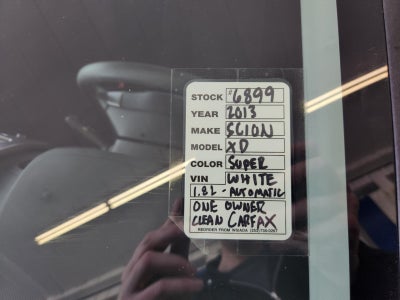 STOCK #6899
YEAR 2013
MAKE SCION
MODEL XD
COLOR SUPER
VIN WHITE
1.8L - AUTOMATIC
ONE OWNER
CLEAN CARFAX
REORDER FROM WSIADA (253)